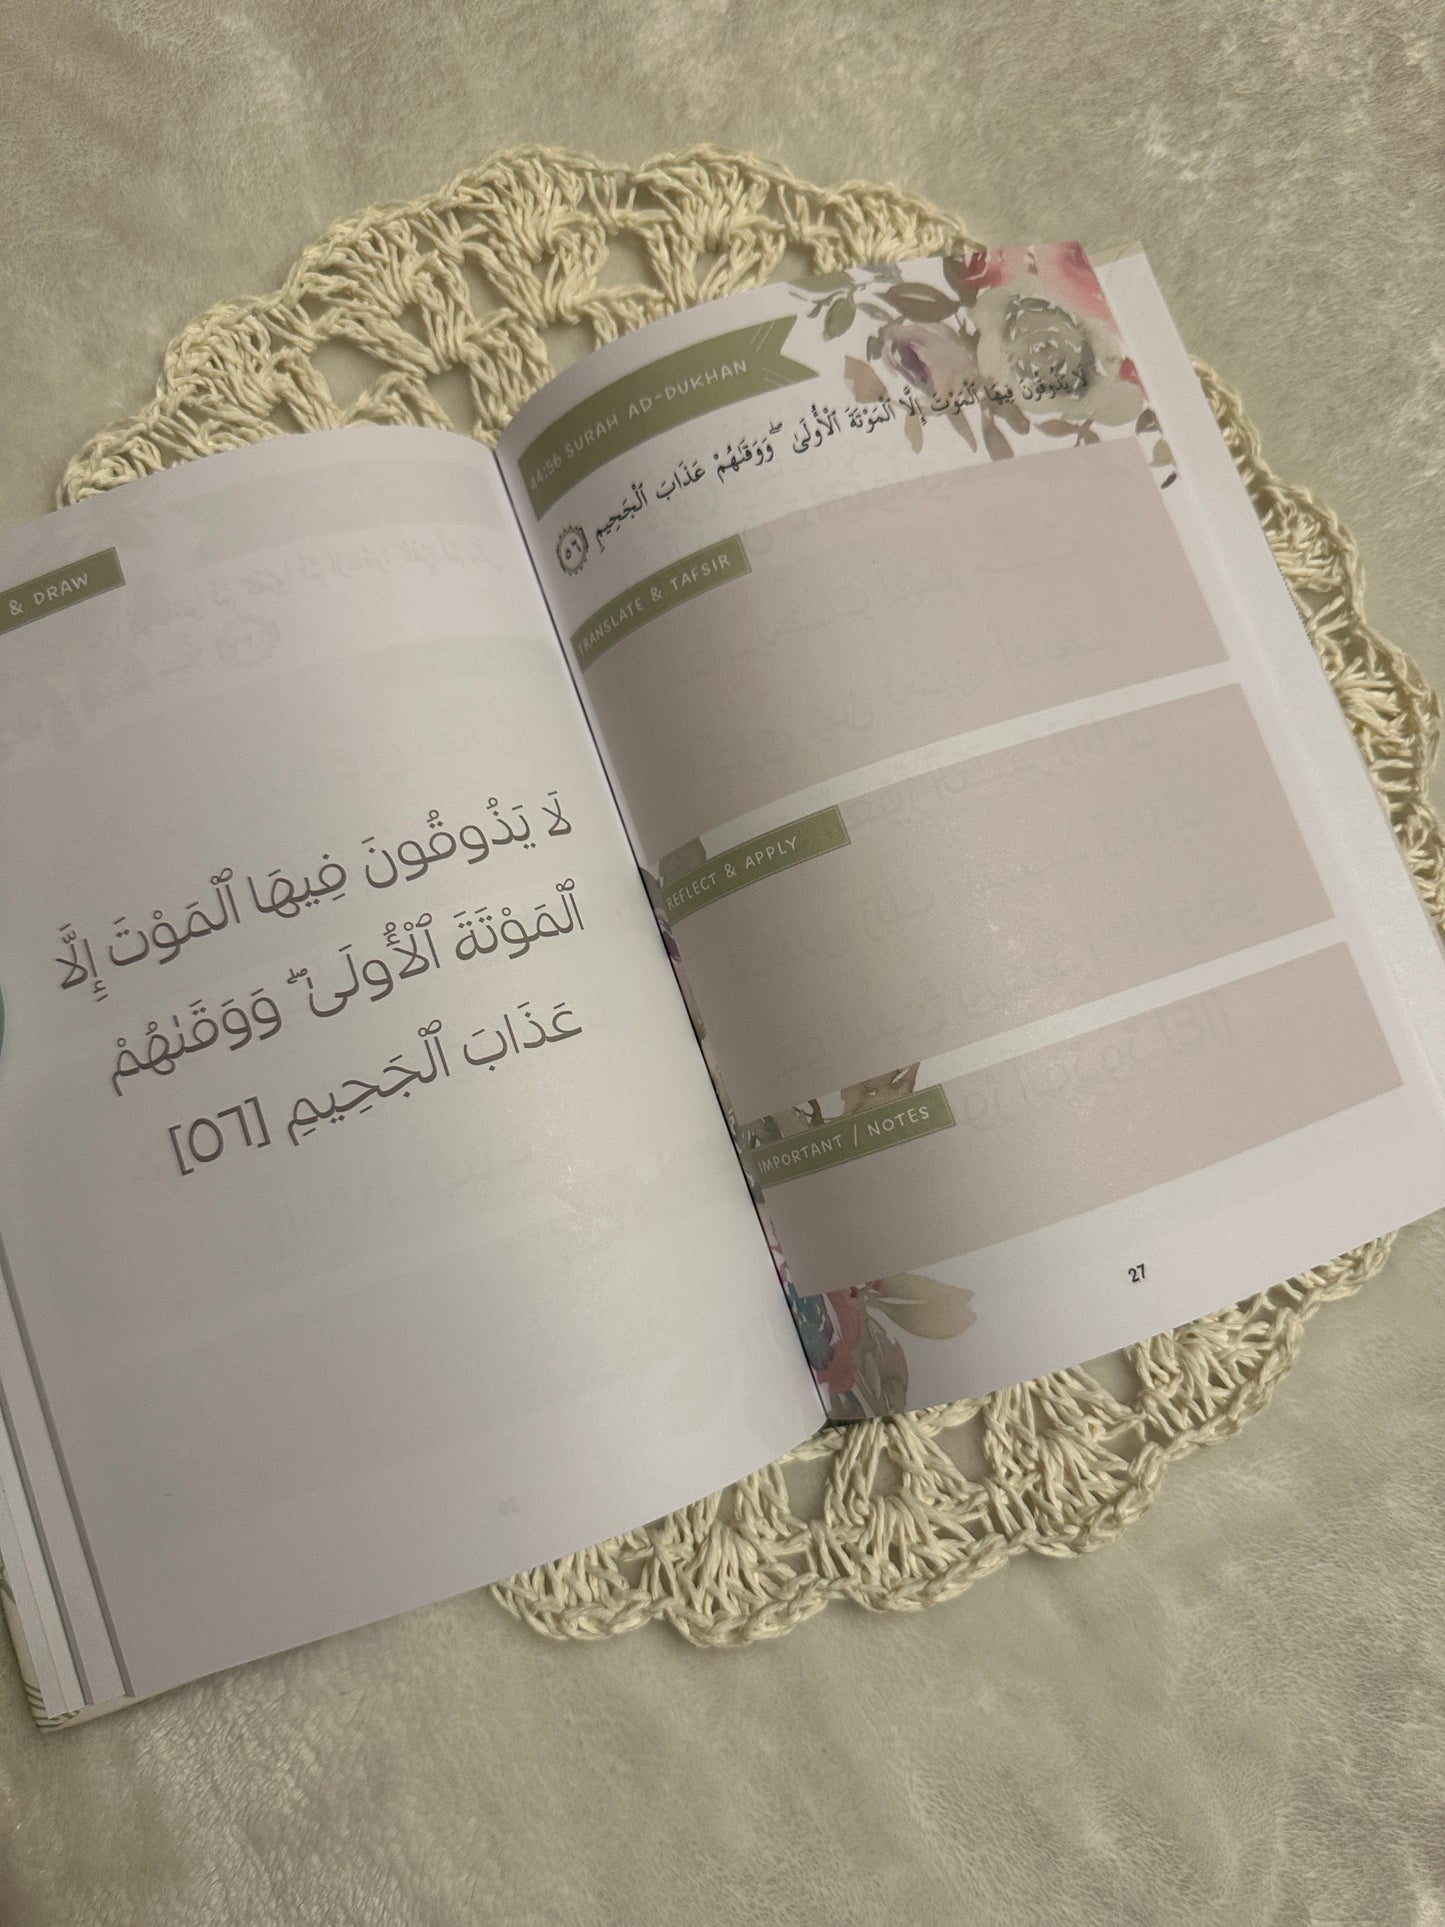 & DRAW
لَا يَذُوقُونَ فِيهَا ٱلْمَوْتَ إِلَّا
ٱلْمَوْتَةَ ٱلْأُولَىٰ ۖ وَوَقَىٰهُمْ
عَذَابَ ٱلْجَحِيمِ [٥٦]
44:56 SURAH AD-DUKHAN
لَا يَذُوقُونَ فِيهَا ٱلْمَوْتَ إِلَّا ٱلْمَوْتَةَ ٱلْأُولَىٰ ۖ وَوَقَىٰهُمْ عَذَابَ ٱلْجَحِيمِ ٥٦
TRANSLATE & TAFSIR
REFLECT & APPLY
IMPORTANT / NOTES
27